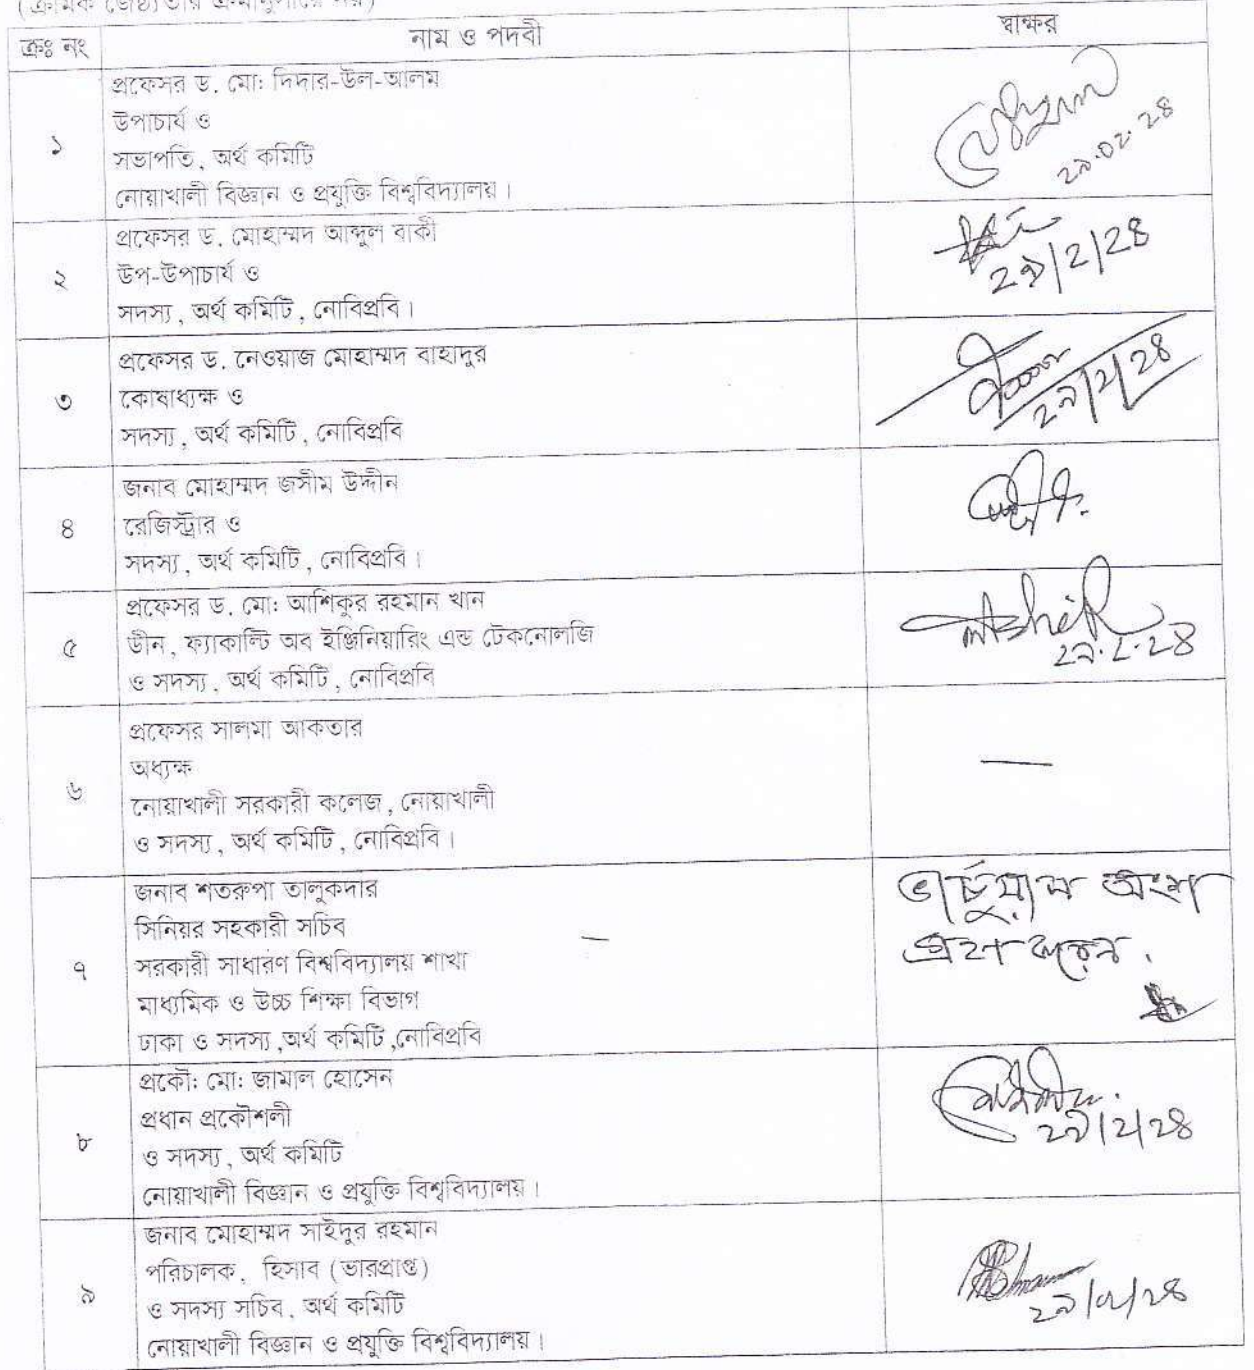 (ক্রমিক জ্যেষ্ঠতার ক্রমানুসারে নয়)
ক্রঃ নং
নাম ও পদবী
স্বাক্ষর
১
প্রফেসর ড. মো: দিদার-উল-আলম
উপাচার্য ও
সভাপতি, অর্থ কমিটি
নোয়াখালী বিজ্ঞান ও প্রযুক্তি বিশ্ববিদ্যালয়।
২৯.০২.২৪
২
প্রফেসর ড. মোহাম্মদ আব্দুল বাকী
উপ-উপাচার্য ও
সদস্য, অর্থ কমিটি, নোবিপ্রবি।
২৯/২/২৪
৩
প্রফেসর ড. নেওয়াজ মোহাম্মদ বাহাদুর
কোষাধ্যক্ষ ও
সদস্য, অর্থ কমিটি, নোবিপ্রবি
২৯/২/২৪
৪
জনাব মোহাম্মদ জসীম উদ্দীন
রেজিস্ট্রার ও
সদস্য, অর্থ কমিটি, নোবিপ্রবি।
৫
প্রফেসর ড. মো: আশিকুর রহমান খান
ডীন, ফ্যাকাল্টি অব ইঞ্জিনিয়ারিং এন্ড টেকনোলজি
ও সদস্য, অর্থ কমিটি, নোবিপ্রবি
২৯.২.২৪
৬
প্রফেসর সালমা আকতার
অধ্যক্ষ
নোয়াখালী সরকারী কলেজ, নোয়াখালী
ও সদস্য, অর্থ কমিটি, নোবিপ্রবি।
—
৭
জনাব শতরুপা তালুকদার
সিনিয়র সহকারী সচিব
সরকারী সাধারণ বিশ্ববিদ্যালয় শাখা
মাধ্যমিক ও উচ্চ শিক্ষা বিভাগ
ঢাকা ও সদস্য ,অর্থ কমিটি ,নোবিপ্রবি
ভার্চুয়াল অংশ
গ্রহণ করেন.
৮
প্রকৌ: মো: জামাল হোসেন
প্রধান প্রকৌশলী
ও সদস্য, অর্থ কমিটি
নোয়াখালী বিজ্ঞান ও প্রযুক্তি বিশ্ববিদ্যালয়।
২৯/২/২৪
৯
জনাব মোহাম্মদ সাইদুর রহমান
পরিচালক, হিসাব (ভারপ্রাপ্ত)
ও সদস্য সচিব, অর্থ কমিটি
নোয়াখালী বিজ্ঞান ও প্রযুক্তি বিশ্ববিদ্যালয়।
২৯/০২/২৪